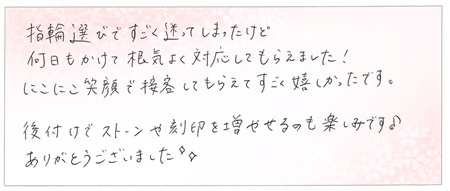 指輪選びですごく迷ってしまったけど
何日もかけて根気よく対応してもらえました！
にこにこ笑顔で接客してもらえてすごく嬉しかったです。
後付けでストーンや刻印を増やせるのも楽しみです♪
ありがとうございました✧